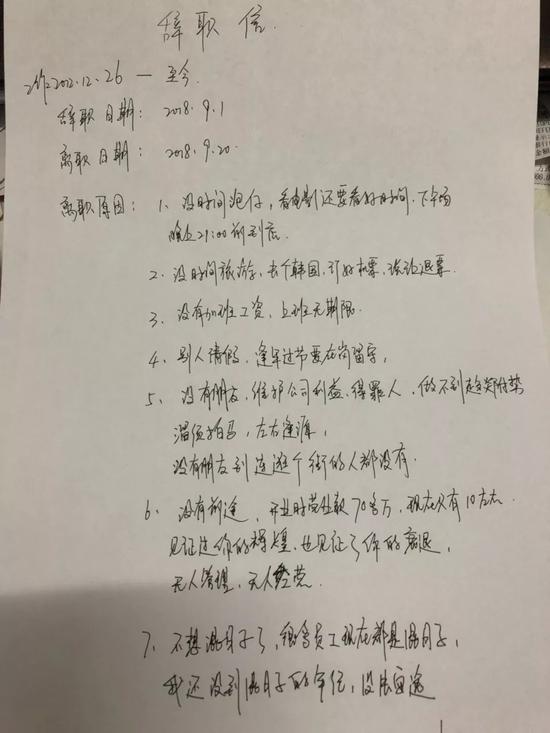 辞职信
2012.12.26 — 至今
辞职日期: 2018.9.1
离职日期: 2018.9.20
离职原因: 1、没时间泡仔,看电影还要看好时间.下午场
晚上21:00前到店.
2、没时间旅游,去个韩国,订好机票,被迫退票
3、没有加班工资,上班无期限.
4、别人请假,逢年过节要在岗留守,
5、没有朋友,维护公司利益.得罪人.做不到趋炎附势
溜须拍马,左右逢源,
没有朋友到连逛个街的人都没有.
6、没有前途,开业时营业额70多万,现在只有10左右
见证过你的辉煌,也见证了你的衰退,
无人管理,无人经营.
7、不想混日子了,很多员工现在都是混日子,
我还没到混日子的年纪,没法